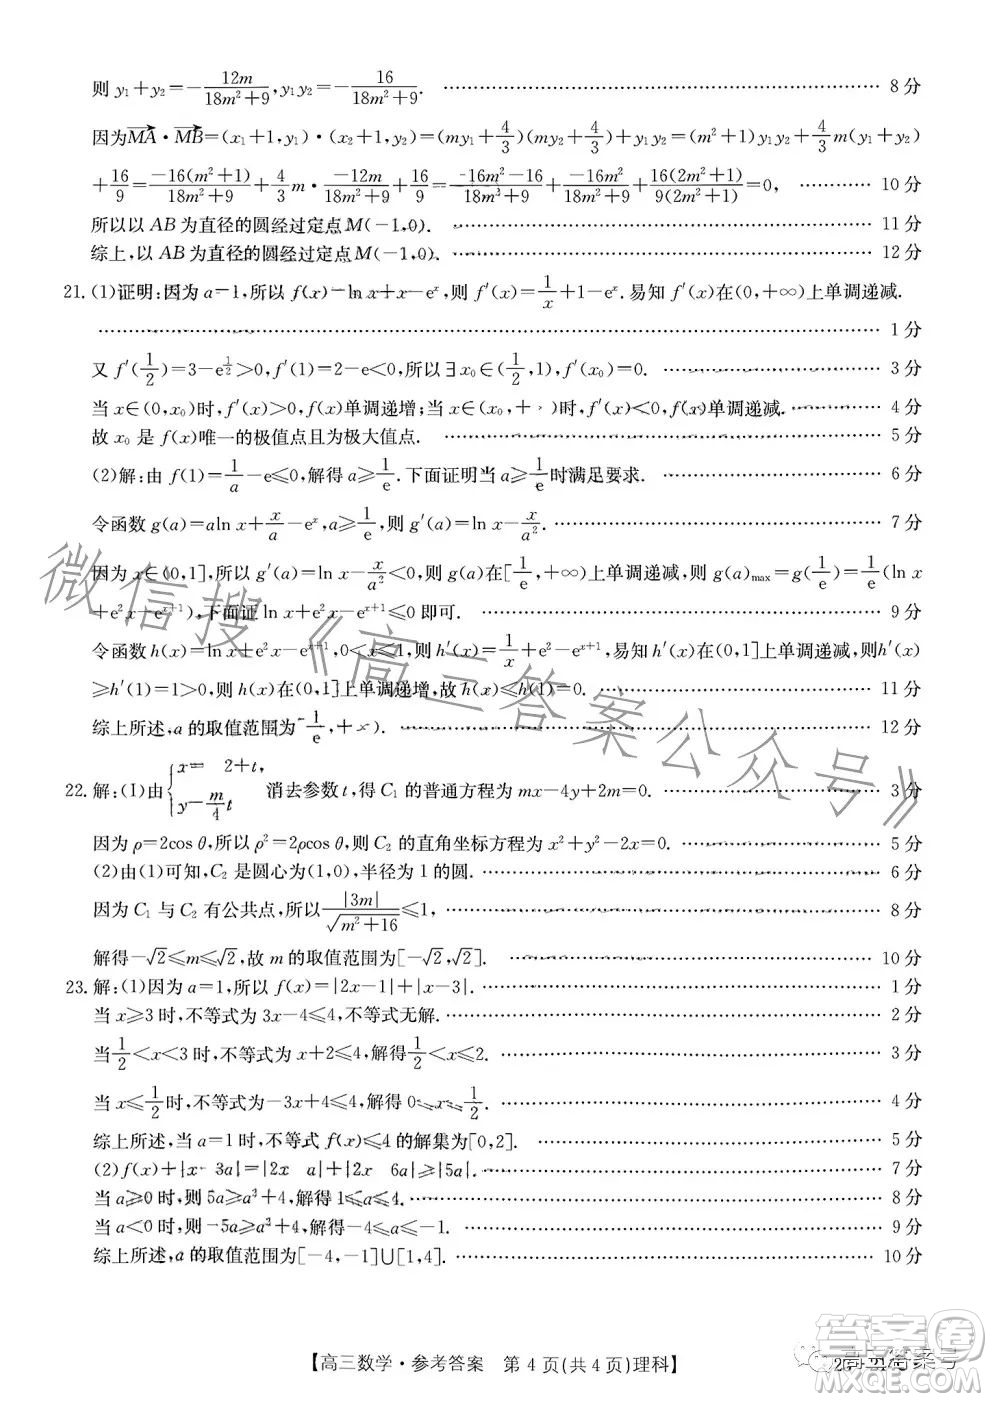 则 y₁+y₂=-12m/(18m²+9),y₁y₂=-16/(18m²+9). ………… 8 分
因为MA·MB=(x₁+1,y₁)·(x₂+1,y₂)=(my₁+4/3)(my₂+4/3)+y₁y₂=(m²+1)y₁y₂+4/3m(y₁+y₂)
+16/9=-16(m²+1)/(18m²+9)+4/3m·-12m/(18m²+9)+16/9=(-16m²-16)/(18m²+9)+-16m²/(18m²+9)+16(2m²+1)/9(2m²+1)=0, ………… 10 分
所以以 AB 为直径的圆经过定点 M(-1,0). ………… 11 分
综上,以 AB 为直径的圆经过定点 M(-1,0). ………… 12 分
21. (1)证明:因为 a=1,所以 f(x)=ln x+x-eˣ,则 f′(x)=1/x+1-eˣ.易知 f′(x)在(0,+∞)上单调递减.
………… 1 分
又 f′(1/2)=3-e^(1/2)>0,f′(1)=2-e<0,所以∃x₀∈(1/2,1),f′(x₀)=0. ………… 3 分
当 x∈(0,x₀)时,f′(x)>0,f(x)单调递增;当 x∈(x₀,+ )时,f′(x)<0,f(x)单调递减. ………… 4 分
故 x₀ 是 f(x)唯一的极值点且为极大值点. ………… 5 分
(2)解:由 f(1)=1/a-e≤0,解得 a≥1/e.下面证明当 a≥1/e时满足要求. ………… 6 分
令函数 g(a)=aln x+x/a-eˣ,a≥1/e,则 g′(a)=ln x-x/a². ………… 7 分
因为 x∈(0,1],所以 g′(a)=ln x-x/a²<0,则 g(a)在[1/e,+∞)上单调递减,则 g(a)max=g(1/e)=1/e(ln x
+e²x-eˣ⁺¹),下面证明 ln x+e²x-eˣ⁺¹≤0 即可. ………… 9 分
令函数 h(x)=ln x+e²x-eˣ⁺¹,0<x≤1,则 h′(x)=1/x+e²-eˣ⁺¹,易知 h′(x)在(0,1]上单调递减,则 h′(x)
≥h′(1)=1>0,则 h(x)在(0,1]上单调递增,故 h(x)≤h(1)=0. ………… 11 分
综上所述,a 的取值范围为 1/e,+ ). ………… 12 分
22. 解:(1)由{x= 2+t, y=m/4t 消去参数 t,得 C₁ 的普通方程为 mx-4y+2m=0. ………… 3 分
因为 ρ=2cos θ,所以 ρ²=2ρcos θ,则 C₂ 的直角坐标方程为 x²+y²-2x=0. ………… 5 分
(2)由(1)可知,C₂ 是圆心为(1,0),半径为 1 的圆. ………… 6 分
因为 C₁ 与 C₂ 有公共点,所以|3m|/√(m²+16)≤1, ………… 8 分
解得-√2≤m≤√2,故 m 的取值范围为[-√2,√2]. ………… 10 分
23. 解:(1)因为 a=1,所以 f(x)=|2x-1|+|x-3|. ………… 1 分
当 x≥3 时,不等式为 3x-4≤4,不等式无解. ………… 2 分
当1/2<x<3 时,不等式为 x+2≤4,解得1/2<x≤2. ………… 3 分
当 x≤1/2时,不等式为-3x+4≤4,解得 0≤x≤1/2. ………… 4 分
综上所述,当 a=1 时,不等式 f(x)≤4 的解集为[0,2]. ………… 5 分
(2)f(x)+|x- 3a|=|2x a|+|2x 6a|≥|5a|. ………… 7 分
当 a≥0 时,则 5a≥a²+4,解得 1≤a≤4. ………… 8 分
当 a<0 时,则-5a≥a²+4,解得-4≤a≤-1. ………… 9 分
综上所述,a 的取值范围为[-4,-1]∪[1,4]. ………… 10 分
微信搜《高三答案公众号》
【高三数学·参考答案 第 4 页(共 4 页)理科】
答案圈
MXQE.COM
高三答案号